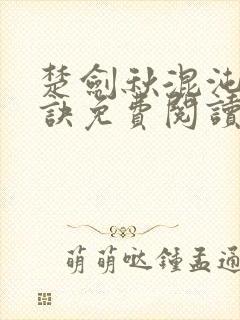 楚劍秋混沌
訣免費閱讀
萌萌噠鍾孟通